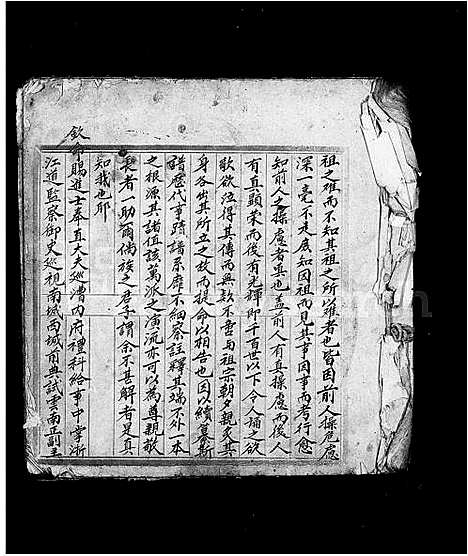 祖之难而不知其祖之所以难者也皆因前人操危慮
深一毫不走底知因祖而見其事因事而考行愈
知前人之操慮者真也盖前人有真操慮而後人
有真顯榮而後有光輝即千百世以下令人誦之欲
歌欲泣得其傳而無欵不啻与祖宗朝夕親炙其
身各出其所立之故而提命以相告也因以續纂斯
譜歷代事蹟譜系靡不細察註釋其端不外一本
之根源其諸值該萬派之演流亦可以為尊親敬
長者一助爾倘族之君子謂余不甚解者是真
知哉也耶
欽命賜進士奉直大夫巡漕内府禮科給事中掌浙
江道監察御史巡視南城西城前典試雲南正副主